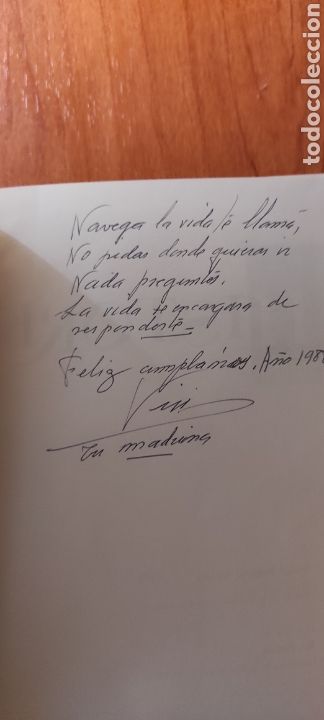 Navega la vida te llama,
No pidas donde quieras ir
Nada preguntes.
La vida se encargara de
responderte
Feliz cumpleaños. Año 198
Vivi
Tu madrina
todocoleccion